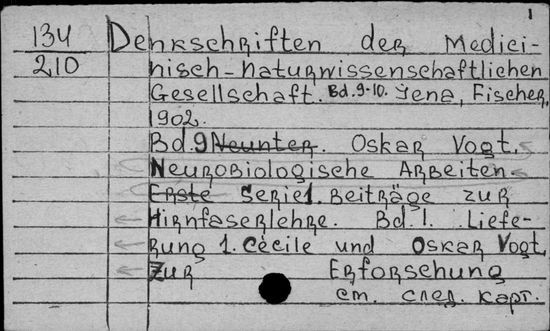 1
134 Denkschriften der Medici-
210 nisch-naturwissenschaftlichen
Gesellschaft. Bd.9-10. Jena, Fischer,
1902.
Bd.9 Neunter. Oskar Vogt.
Neurobiologische Arbeiten
Erste Serie 1. Beiträge zur
Hirnfaserlehre. Bd.1. Liefe-
rung 1. Cécile und Oskar Vogt.
Zur Erforschung
см. след. карт.